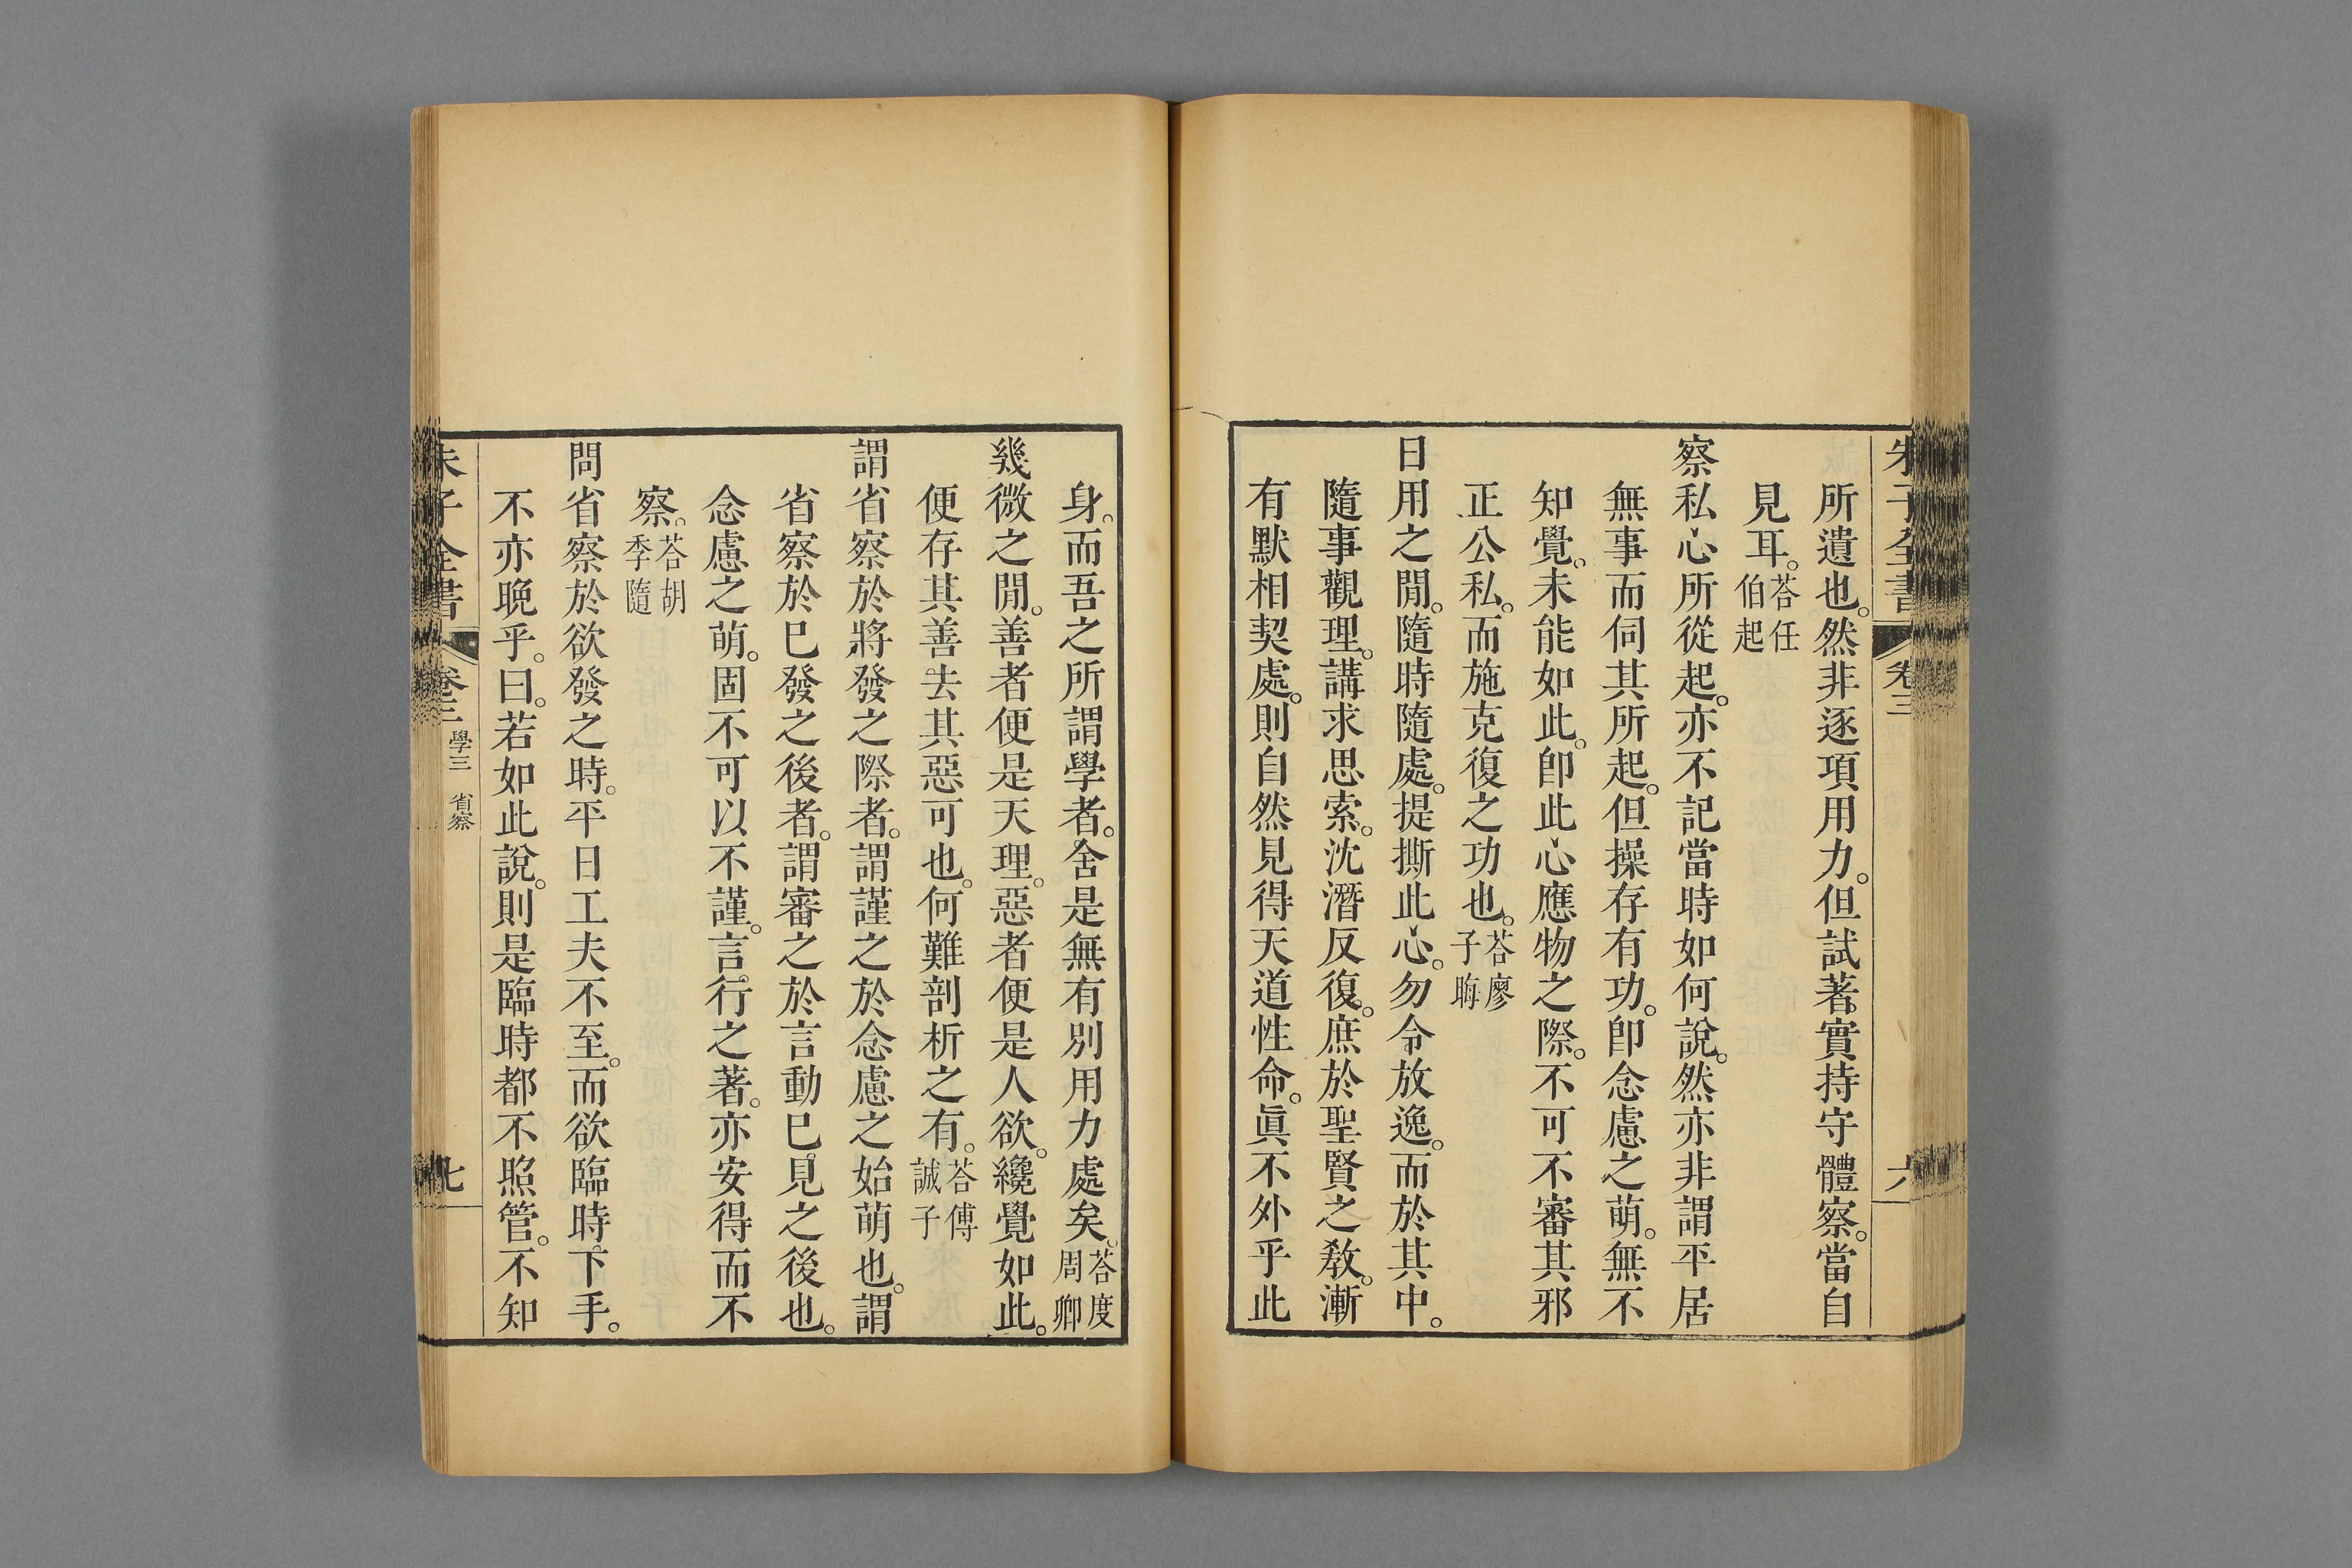 朱子全書 卷三 六
所遺也。然非逐項用力。但試著實持守體察。當自
見耳。荅任伯起
察私心所從起。亦不記當時如何說。然亦非謂平居
無事而伺其所起。但操存有功。卽念慮之萌。無不
知覺。未能如此。卽此心應物之際。不可不審其邪
正公私。而施克復之功也。荅廖子晦
日用之閒。隨時隨處。提撕此心。勿令放逸。而於其中。
隨事觀理。講求思索。沈潛反復。庶於聖賢之敎。漸
有默相契處。則自然見得天道性命。眞不外乎此
身。而吾之所謂學者。舍是無有別用力處矣。荅度周卿
幾微之閒。善者便是天理。惡者便是人欲。纔覺如此。
便存其善去其惡可也。何難剖析之有。荅傅誠子
謂省察於將發之際者。謂謹之於念慮之始萌也。謂
省察於已發之後者。謂審之於言動已見之後也。
念慮之萌。固不可以不謹。言行之著。亦安得而不
察。荅胡季隨
問省察於欲發之時。平日工夫不至。而欲臨時下手。
不亦晚乎。曰。若如此說。則是臨時都不照管。不知
朱子全書 卷三 學三 省察 七